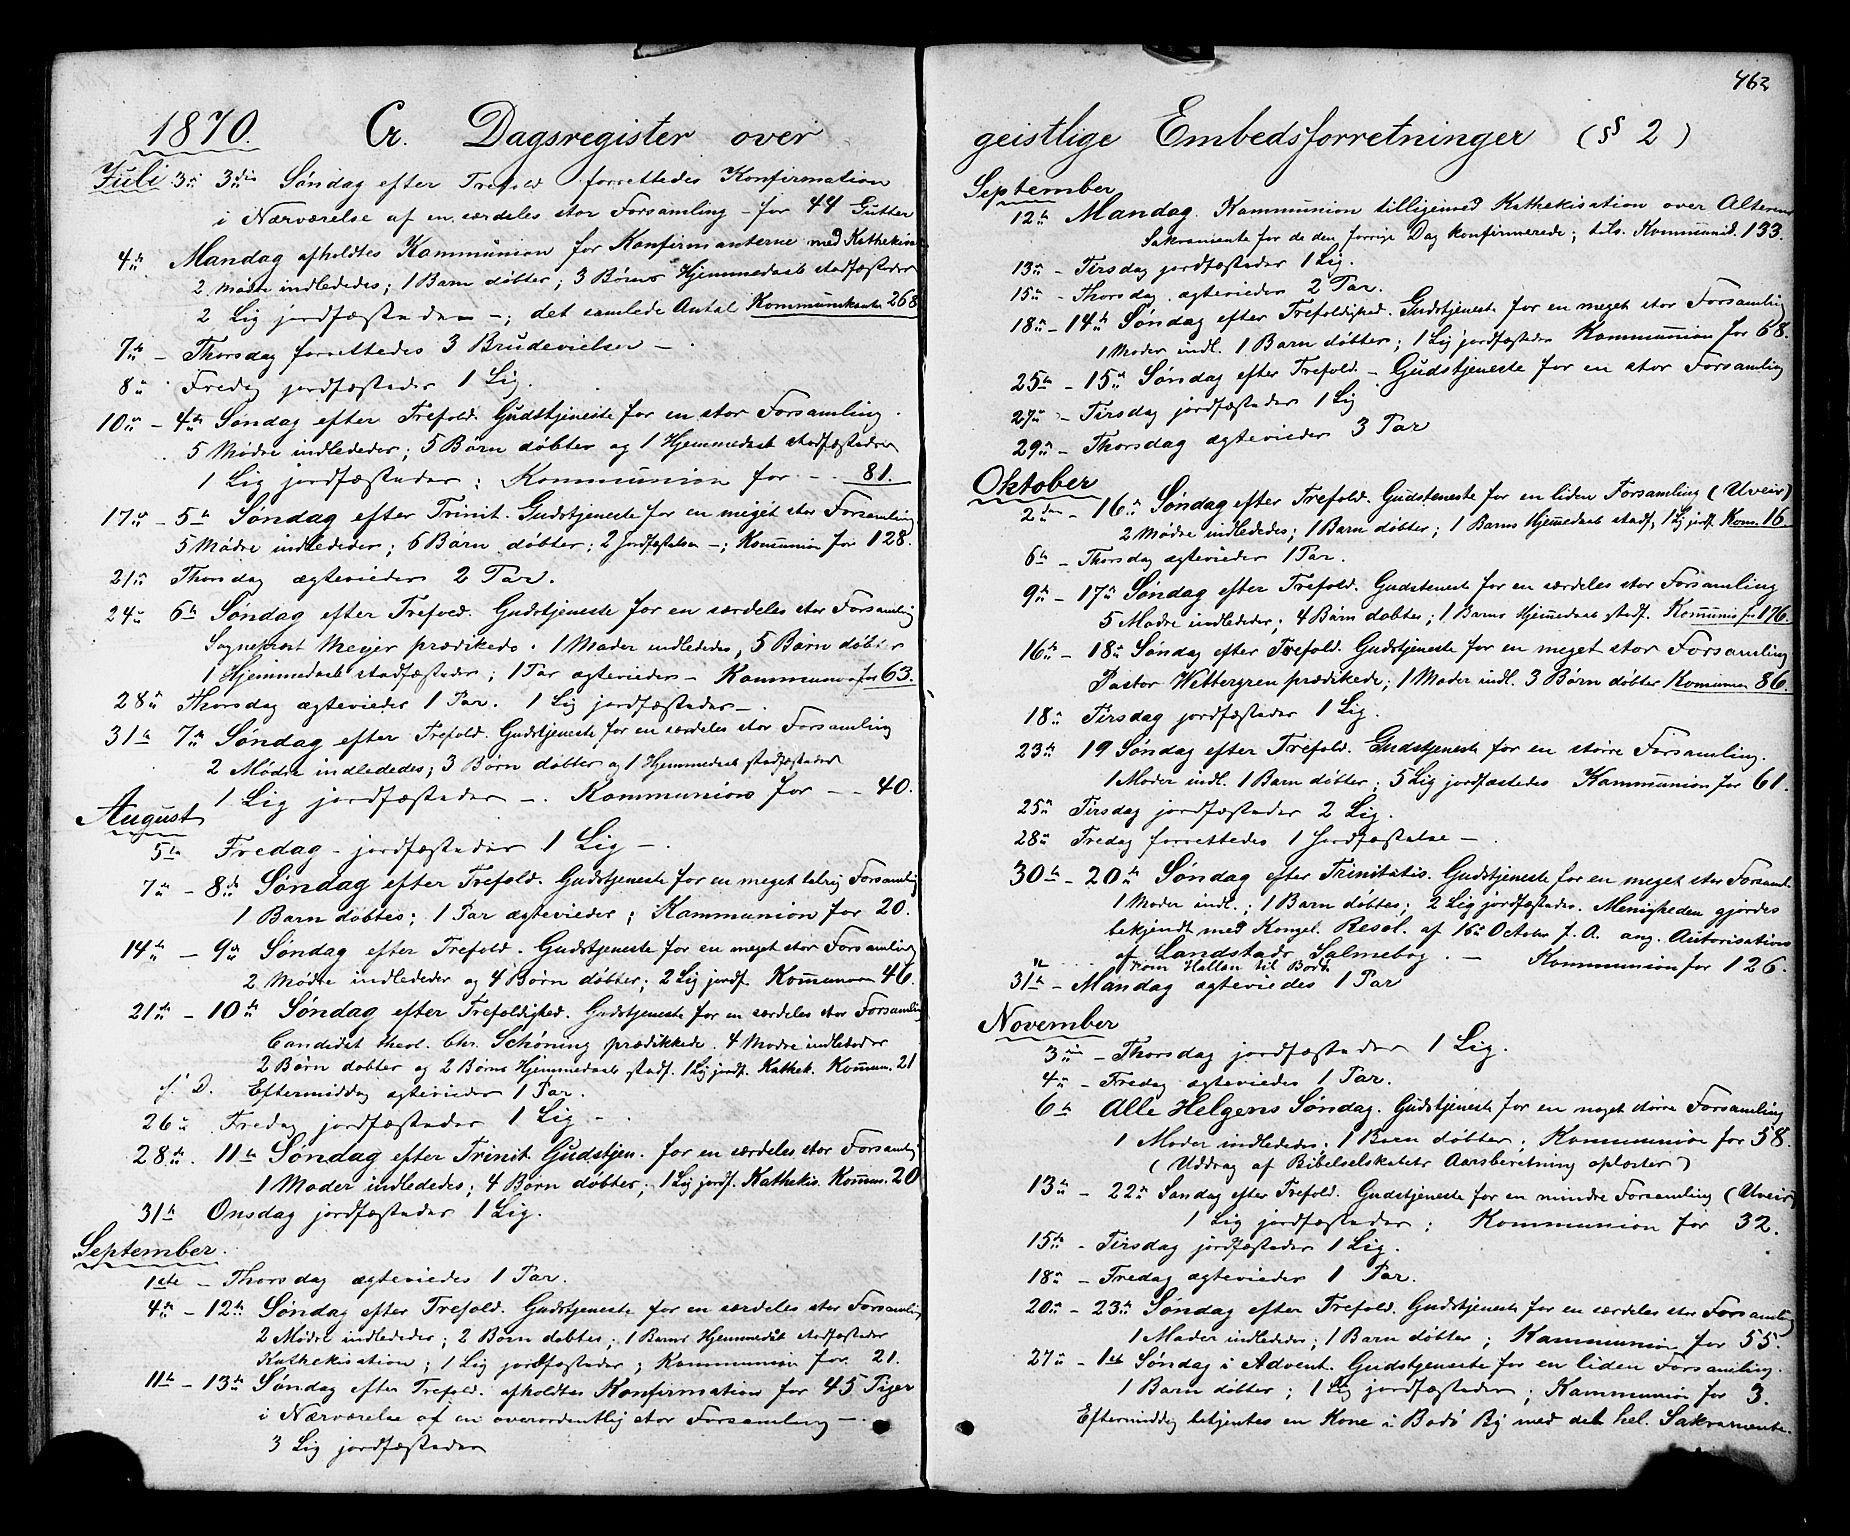 1870. Cr. Dagsregister over
Juli 3die 3die Søndag efter Trefold. forrettedes Konfirmation
i Nærværelse af en særdeles stor Forsamling – for 44 Gutter
4de Mandag afholdtes Kommunion for Konfirmanterne med Kathekis
2 Mødre indlededes; 1 Barn døbtes; 3 Børns Hjemmedaab stadfæstedes
2 Lig jordfæstedes –; det samlede Antal Kommunikanter 268
7de – Thorsdag forrettedes 3 Brudevielser –
8de Fredag jordfæstedes 1 Lig.
10de – 4de Søndag efter Trefold. Gudstjeneste for en stor Forsamling.
5 Mødre indlededes; 5 Børn døbtes og 1 Hjemmedaab stadfæstedes
1 Lig jordfæstedes; Kommunion for – 81.
17de – 5te Søndag efter Trinit. Gudstjeneste for en meget stor Forsamling
5 Mødre indlededes; 6 Børn døbtes; 2 Jordfæstelser –; Kommunion for 128.
21de Thorsdag ægteviedes 2 Par.
24de 6te Søndag efter Trefold. Gudstjeneste for en særdeles stor Forsamling
Sogneprest Meyer prædikede. 1 Moder indlededes, 5 Børn døbtes
1 Hjemmedaab stadfæstedes; 1 Par ægteviedes – Kommunion for 63.
28de Thorsdag ægteviedes 1 Par. 1 Lig jordfæstedes –.
31te 7de Søndag efter Trefold. Gudstjeneste for en særdeles stor Forsamling
2 Mødre indlededes; 3 Børn døbtes og 1 Hjemmedaab stadfæstedes
1 Lig jordfæstedes –. Kommunion for – – 40.
August
5te Fredag – jordfæstedes 1 Lig –.
7de – 8de Søndag efter Trefold. Gudstjeneste for en meget talrig Forsamling
1 Barn døbtes; 1 Par ægteviedes; Kommunion for 20.
14de – 9de Søndag efter Trefold. Gudstjeneste for en meget stor Forsamling
2 Mødre indlededes og 4 Børn døbtes; 2 Lig jordf. Kommunion 46.
21de – 10de Søndag efter Trefoldighed. Gudstjeneste for en særdeles stor Forsamling
Candidat theol. Chr. Schøning prædikkede. 4 Mødre indlededes
2 Børn døbtes og 2 Børns Hjemmedaab stadf. 1 Lig jordf. Kathek. Kommun. 21
s. D. Eftermiddag ægteviedes 1 Par.
26de Fredag jordfæstedes 1 Lig –.
28de. 11te Søndag efter Trinit. Gudstjen. for en særdeles stor Forsamling
1 Moder indlededes; 4 Børn døbtes; 1 Lig jordf. Kathekis. Kommun. 20
31te Onsdag jordfæstedes 1 Lig.
September.
1ste – Thorsdag ægteviedes 1 Par.
4de – 12te Søndag efter Trefold. Gudstjeneste for en særdeles stor Forsamling
2 Mødre indlededes; 2 Børn døbtes; 1 Barns Hjemmedåb stadfæstedes
Kathekisation; 1 Lig jordfæstedes; Kommunion for 21.
11te – 13de Søndag efter Trefold. afholdtes Konfirmation for 45 Piger
i Nærværelse af en overordentlig stor Forsamling –.
3 Lig jordfæstedes
462
geistlige Embedsforretninger (§ 2)
September
12te Mandag. Kommunion tilligemed Kathekisation over Alterens
Sakramente for de den forrige Dag konfirmerede; tils. Kommunik. 133.
13de – Tirsdag jordfæstedes 1 Lig.
15de – Thorsdag ægteviedes 2 Par.
18de – 14de Søndag efter Trefoldighed. Gudstjeneste for en meget stor Forsamling
1 Moder indl. 1 Barn døbtes; 1 Lig jordfæstedes Kommunion for 68.
25de – 15de Søndag efter Trefold. – Gudstjeneste for en stor Forsamling
27de – Tirsdag jordfæstedes 1 Lig
29de – Thorsdag ægteviedes 3 Par
Oktober
2den – 16de Søndag efter Trefold. Gudsteneste for en liden Forsamling (Uveir)
2 Mødre indlededes; 1 Barn døbtes; 1 Barns Hjemmedaab stadf; 1 Lig jordf. Kom. 16
6te – Thorsdag ægteviedes 1 Par.
9de – 17de Søndag efter Trefold. Gudsteneste for en særdeles stor Forsamling
5 Mødre indlededes; 4 Børn døbtes; 1 Barns Hjemmedaab stadf. Kommunio for 176.
16de – 18de Søndag efter Trefold. Gudstjeneste for en meget stor Forsamling
Pastor Wettergren prædikede; 1 Moder indl. 3 Børn døbtes Komunion 86.
18de Tirsdag jordfæstedes 1 Lig.
23de 19 Søndag efter Trefold. Gudstjeneste for en større Forsamling.
1 Moder indl. 1 Barn døbtes; 5 Lig jordfæstedes Kommunion for 61.
25de Tirsdag jordfæstedes 2 Lig.
28de Fredag forrettedes 1 Jordfæstelse –.
30te – 20de Søndag efter Trinitatis. Gudstjeneste for en meget stor Forsaml.
1 Moder indl.; 1 Barn døbtes; 2 Lig jordfæstedes. Menigheden gjordes
bekjendt med Kongel. Resol. af 16de October f. A. ang. Autorisation
af Landstads Salmebog. – Kommunion for 126.
31te – Mandag ægteviedes 1 Par
November
3die – Thorsdag jordfæstedes 1 Lig.
4de – Fredag ægteviedes 1 Par.
6te Alle Helgens Søndag. Gudstjeneste for en noget større Forsamling
1 Moder indlededes; 1 Barn døbtes; Kommunion for 58.
(Uddrag af Bibelselskabets Aarsberetning oplæstes)
13de – 22de Søndag efter Trefold. Gudstjeneste for en mindre Forsamling (Uveir)
1 Lig jordfæstedes; Kommunion for 32.
15de – Tirsdag jordfæstedes 1 Lig.
18de – Fredag ægteviedes 1 Par.
20de – 23de Søndag efter Trefold. Gudstjeneste for en særdeles stor Forsamling
1 Moder indlededes; 1 Barn døbtes; Kommunion for 55.
27de – 1ste Søndag i Advent. Gudstjeneste for en liden Forsamling.
1 Barn døbtes; 1 Lig jordfæstedes; Kommunion for 3.
Eftermiddag betjentes en Kone i Bodø By med det hel. Sakramente.